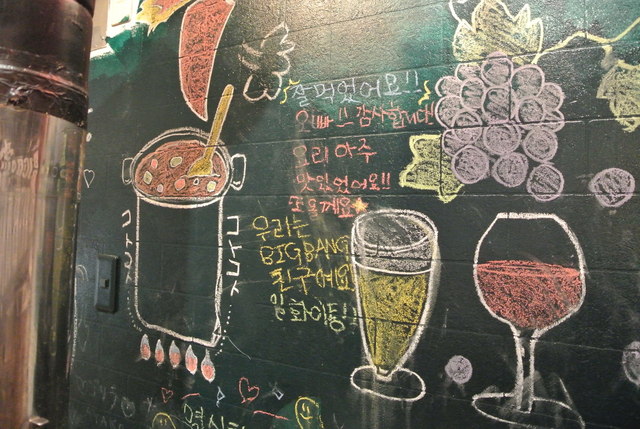 잘 먹었어요!!
오빠!! 감사합니다!
요리 아주
맛있었어요!!
또 올께요★
우리는
BIGBANG
친구예요
일 화이팅!!